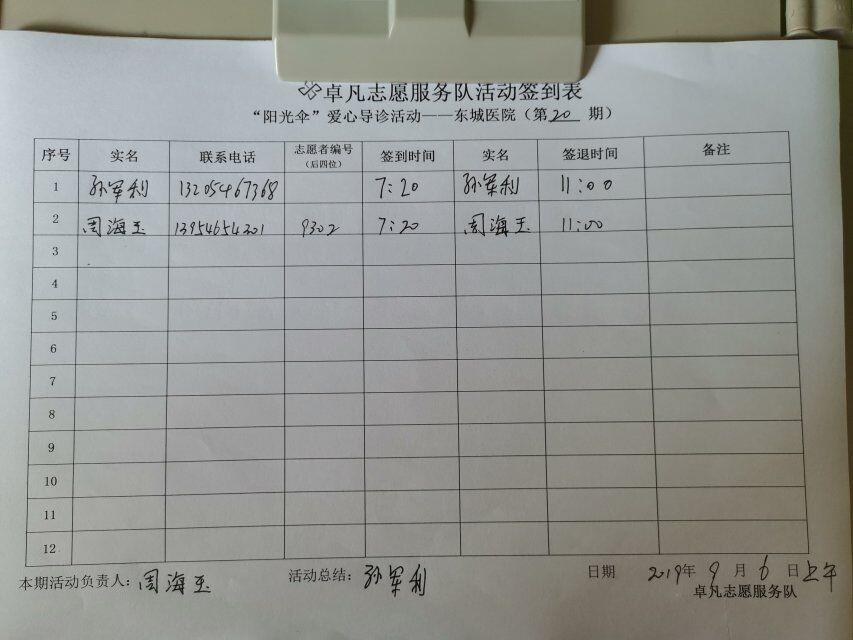 卓凡志愿服务队活动签到表
“阳光伞”爱心导诊活动——东城医院（第20期）
序号 实名 联系电话 志愿者编号（后四位） 签到时间 实名 签退时间 备注
1 孙军利 13205467368 7:20 孙军利 11:00
2 周海玉 13954654301 9302 7:20 周海玉 11:00
3
4
5
6
7
8
9
10
11
12
本期活动负责人：周海玉 活动总结：孙军利 日期 2019年9月6日上午
卓凡志愿服务队